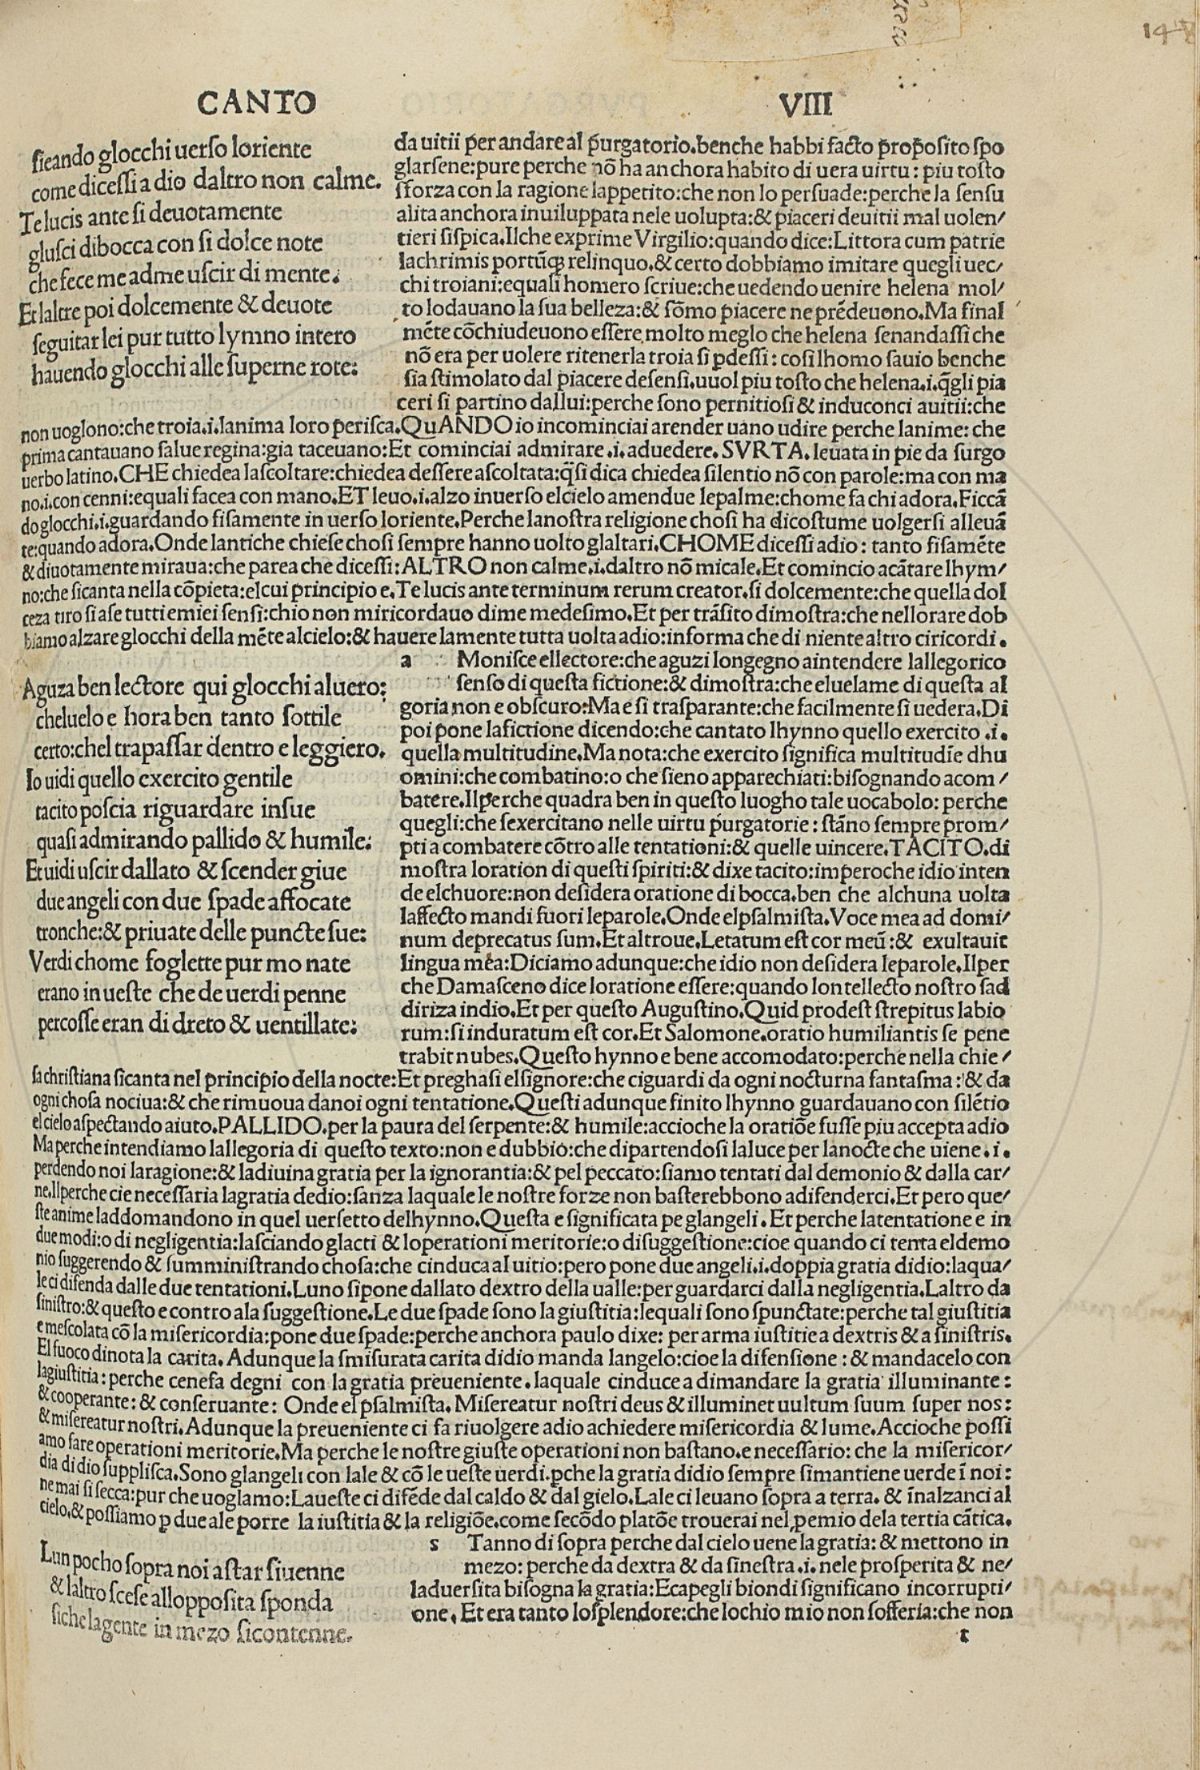 CANTO VIII
ficando glocchi uerso loriente
come dicessi a dio daltro non calme.
Te lucis ante si deuotamente
glusci di bocca con si dolce note
che fece me adme uscir di mente.
Et laltre poi dolcemente & deuote
seguitar lei pur tutto lymno intero
hauendo glocchi alle superne rote:
da uitii per andare al purgatorio.benche habbi facto proposito spo
glarsene:pure perche nõ ha anchora habito di uera uirtu: piu tosto
sforza con la ragione lappetito:che non lo persuade:perche la sensu
alita anchora inuiluppata nele uolupta:& piaceri deuitii mal uolen/
tieri si spica.Ilche exprime Virgilio:quando dice:Littora cum patrie
lachrimis portũq; relinquo.& certo dobbiamo imitare quegli uec/
chi troiani:equali homero scriue:che uedendo uenire helena mol/
to lodauano la sua belleza:& sõmo piacere ne prẽdeuono.Ma final
mẽte cõchiudeuono essere molto meglo che helena senandassi che
nõ era per uolere ritenerla troia si pdessi: cosi lhomo sauio benche
sia stimolato dal piacere desensi.uuol piu tosto che helena.i.q̃gli pia
ceri si partino dallui:perche sono pernitiosi & induconci auitii:che
non uoglono:che troia.i.lanima loro perisca.QuANDO io incominciai arender uano udire perche lanime: che
prima cantauano salue regina:gia taceuano:Et cominciai admirare.i.aduedere.SVRTA.leuata in pie da surgo
uerbo latino.CHE chiedea lascoltare:chiedea dessere ascoltata:q̃si dica chiedea silentio nõ con parole:ma con ma
no.i.con cenni:equali facea con mano.ET leuo.i.alzo inuerso elcielo amendue lepalme:chome fa chi adora.Ficcã
do glocchi.i.guardando fisamente in uerso loriente.Perche lanostra religione chosi ha dicostume uolgersi alleuã
te:quando adora.Onde lantiche chiese chosi sempre hanno uolto glaltari.CHOME dicessi adio: tanto fisamẽte
& diuotamente miraua:che parea che dicessi:ALTRO non calme.i.daltro nõ micale.Et comincio acãtare lhym/
no:che sicanta nella cõpieta:elcui principio e.Te lucis ante terminum rerum creator.si dolcemente:che quella dol
ceza tiro si a se tutti emiei sensi:chio non miricordauo dime medesimo.Et per trãsito dimostra:che nellorare dob
biamo alzare glocchi della mẽte alcielo:& hauere lamente tutta uolta adio:informa che di niente altro ciricordi.
Aguza ben lectore qui glocchi aluero:
cheluelo e hora ben tanto sottile
certo:chel trapassar dentro e leggiero.
Io uidi quello exercito gentile
tacito poscia riguardare insue
quasi admirando pallido & humile:
Et uidi uscir dallato & scender giue
due angeli con due spade affocate
tronche:& priuate delle puncte sue:
Verdi chome foglette pur mo nate
erano in ueste che de uerdi penne
percosse eran di dreto & uentillate:
a Monisce ellectore:che aguzi longegno aintendere lallegorico
senso di questa fictione:& dimostra:che eluelame di questa al
goria non e obscuro:Ma e si trasparante:che facilmente si uedera.Di
poi pone lafictione dicendo:che cantato lhynno quello exercito .i.
quella multitudine.Ma nota:che exercito significa multitudĩe dhu
omini:che combatino:o che sieno apparechiati:bisognando acom/
batere.Ilperche quadra ben in questo luogho tale uocabolo: perche
quegli:che sexercitano nelle uirtu purgatorie: stãno sempre prom/
pti a combatere cõtro alle tentationi:& quelle uincere.TACITO.di
mostra loration di questi spiriti:& dixe tacito:imperoche idio inten
de elchuore:non desidera oratione di bocca.ben che alchuna uolta
laffecto mandi fuori leparole.Onde elpsalmista.Voce mea ad domi/
num deprecatus sum.Et altroue.Letatum est cor meũ:& exultauit
lingua mea:Diciamo adunque:che idio non desidera leparole.Ilper
che Damasceno dice loratione essere:quando lontellecto nostro sad
diriza indio.Et per questo Augustino.Quid prodest strepitus labio
rum:si induratum est cor.Et Salomone.oratio humiliantis se pene
trabit nubes.Questo hynno e bene accomodato:perche nella chie/
sa christiana sicanta nel principio della nocte:Et preghasi elsignore:che ciguardi da ogni nocturna fantasma:& da
ogni chosa nociua:& che rimuoua danoi ogni tentatione.Questi adunque finito lhynno guardauano con silẽtio
el cielo aspectando aiuto.PALLIDO.per la paura del serpente:& humile:accioche la oratiõe fusse piu accepta adio
Ma perche intendiamo lallegoria di questo texto:non e dubbio:che dipartendosi laluce per lanocte che uiene.i.
perdendo noi laragione:& ladiuina gratia per la ignorantia:& pel peccato:siamo tentati dal demonio & dalla car/
ne.Ilperche cie necessaria lagratia dedio:sanza laquale le nostre forze non basterebbono adifenderci.Et pero que/
ste anime laddomandono in quel uersetto delhynno.Questa e significata pe glangeli.Et perche latentatione e in
due modi:o di negligentia:lasciando glacti & loperationi meritorie:o disuggestione:cioe quando ci tenta eldemo
nio suggerendo & summinis­trando chosa:che cinduca al uitio:pero pone due angeli.i.doppia gratia didio:laqua/
le ci difenda dalle due tentationi.Luno sipone dallato dextro della ualle:per guardarci dalla negligentia.Laltro da
sinistro:& questo e contro ala suggestione.Le due spade sono la giustitia:lequali sono spunctate:perche tal giustitia
e mescolata cõ la misericordia:pone due spade:perche anchora paulo dixe: per arma iustitie a dextris & a sinistris.
El fuoco dinota la carita.Adunque la smisurata carita didio manda langelo:cioe la difensione:& mandacelo con
lagiustitia: perche cenefa degni con la gratia preueniente.laquale cinduce a dimandare la gratia illuminante:
& cooperante: & conseruante: Onde el psalmista.Misereatur nostri deus & illuminet uultum suum super nos:
& misereatur nostri.Adunque la preueniente ci fa riuolgere adio achiedere misericordia & lume.Accioche possi
amo fare operationi meritorie.Ma perche le nostre giuste operationi non bastano.e necessario: che la misericor/
dia di dio supplisca.Sono glangeli con lale & cõ le ueste uerdi.pche la gratia didio sempre simantiene uerde ĩ noi:
ne mai si secca:pur che uoglamo:Laueste ci difẽde dal caldo & dal gielo.Lale ci leuano sopra a terra.& ĩnalzanci al
cielo.& possiamo p due ale porre la iustitia & la religiõe.come secõdo platõe trouerai nel pemio dela tertia cãtica.
Lun pocho sopra noi a star si uenne
& laltro scese allopposita sponda
siche lagente in mezo sicontenne.
s Tanno di sopra perche dal cielo uene la gratia: & mettono in
mezo: perche da dextra & da sinestra.i.nele prosperita & ne/
laduersita bisogna la gratia:Ecapegli biondi significano incorrupti/
one.Et era tanto losplendore:che lochio mio non sofferia:che non
t